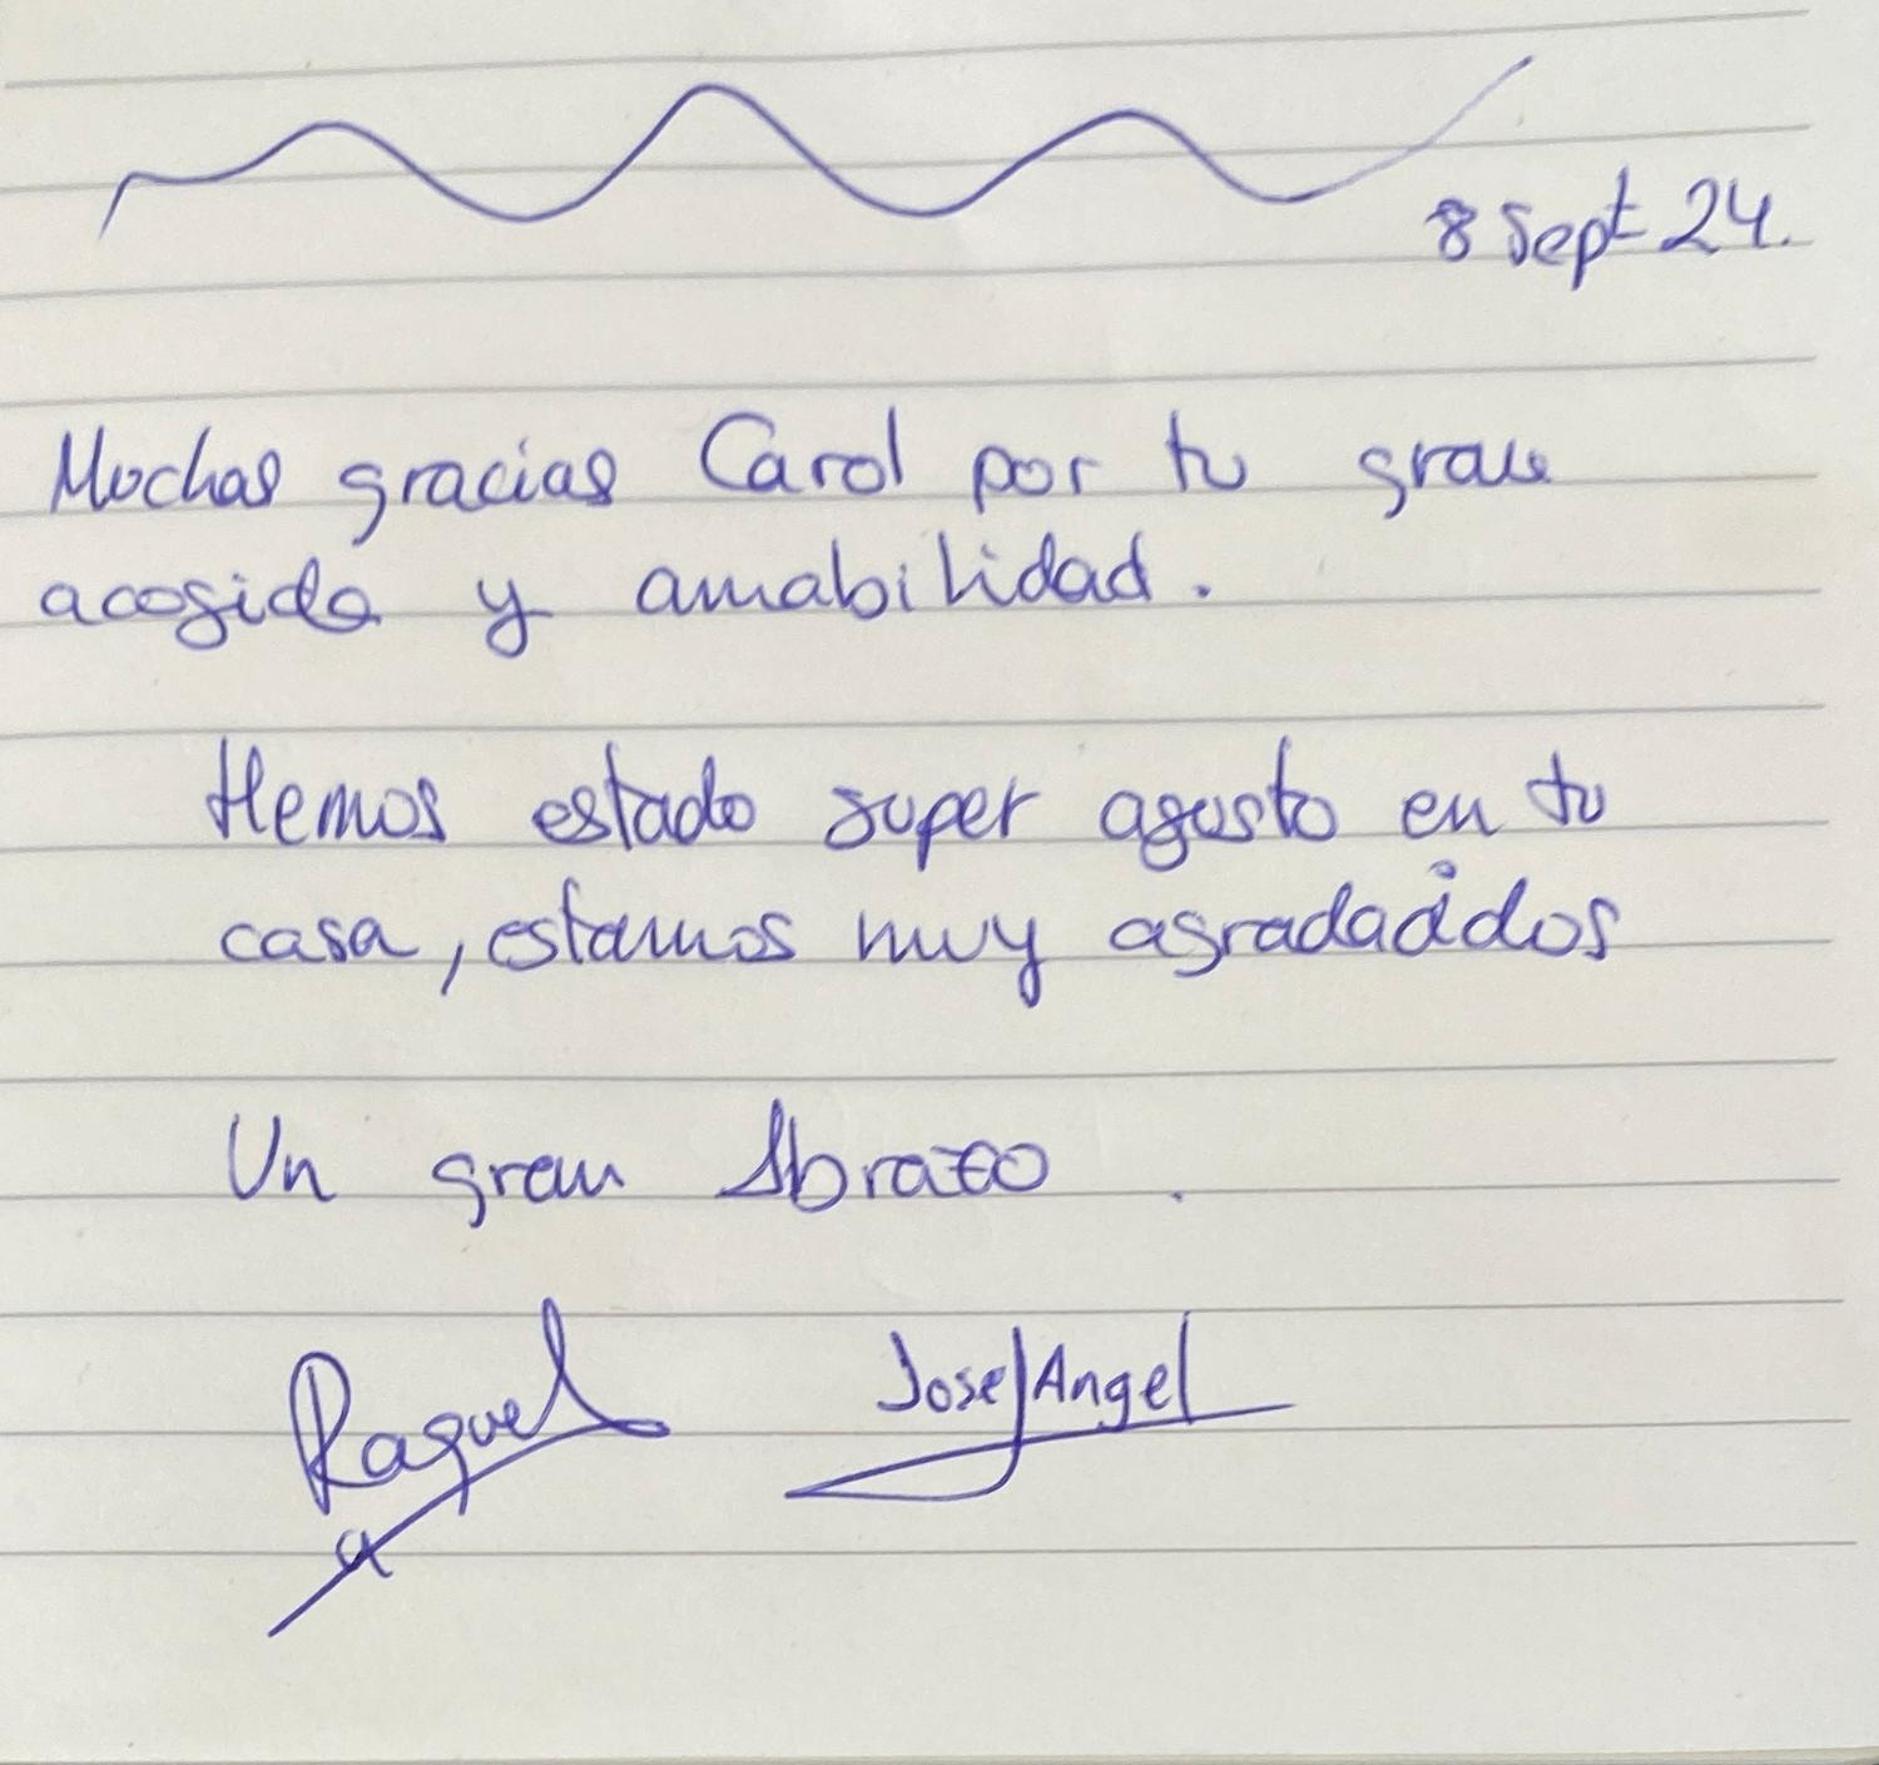 8 Sept 24.
Muchas gracias Carol por tu gran
acogida y amabilidad.
Hemos estado super agusto en tu
casa, estamos muy agradacidos
Un gran Abrazo.
Raquel Jose Angel